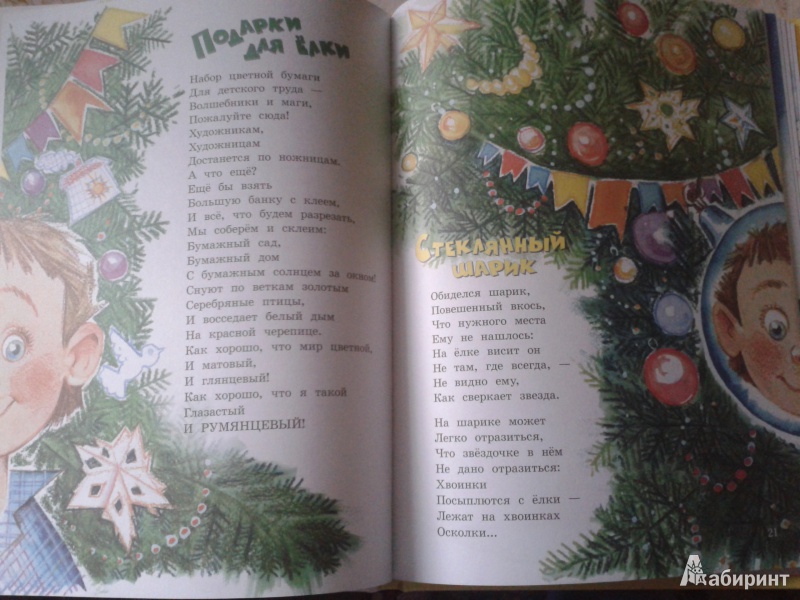 ПОДАРКИ
ДЛЯ ЁЛКИ
Набор цветной бумаги
Для детского труда —
Волшебники и маги,
Пожалуйте сюда!
Художникам,
Художницам
Достанется по ножницам.
А что ещё?
Ещё бы взять
Большую банку с клеем,
И всё, что будем разрезать,
Мы соберём и склеим:
Бумажный сад,
Бумажный дом
С бумажным солнцем за окном!
Снуют по веткам золотым
Серебряные птицы,
И восседает белый дым
На красной черепице.
Как хорошо, что мир цветной,
И матовый,
И глянцевый!
Как хорошо, что я такой
Глазастый
И РУМЯНЦЕВЫЙ!
СТЕКЛЯННЫЙ
ШАРИК
Обиделся шарик,
Повешенный вкось,
Что нужного места
Ему не нашлось:
На ёлке висит он
Не там, где всегда, —
Не видно ему,
Как сверкает звезда.
На шарике может
Легко отразиться,
Что звёздочке в нём
Не дано отразиться:
Хвоинки
Посыплются с ёлки —
Лежат на хвоинках
Осколки...
21
Лабиринт